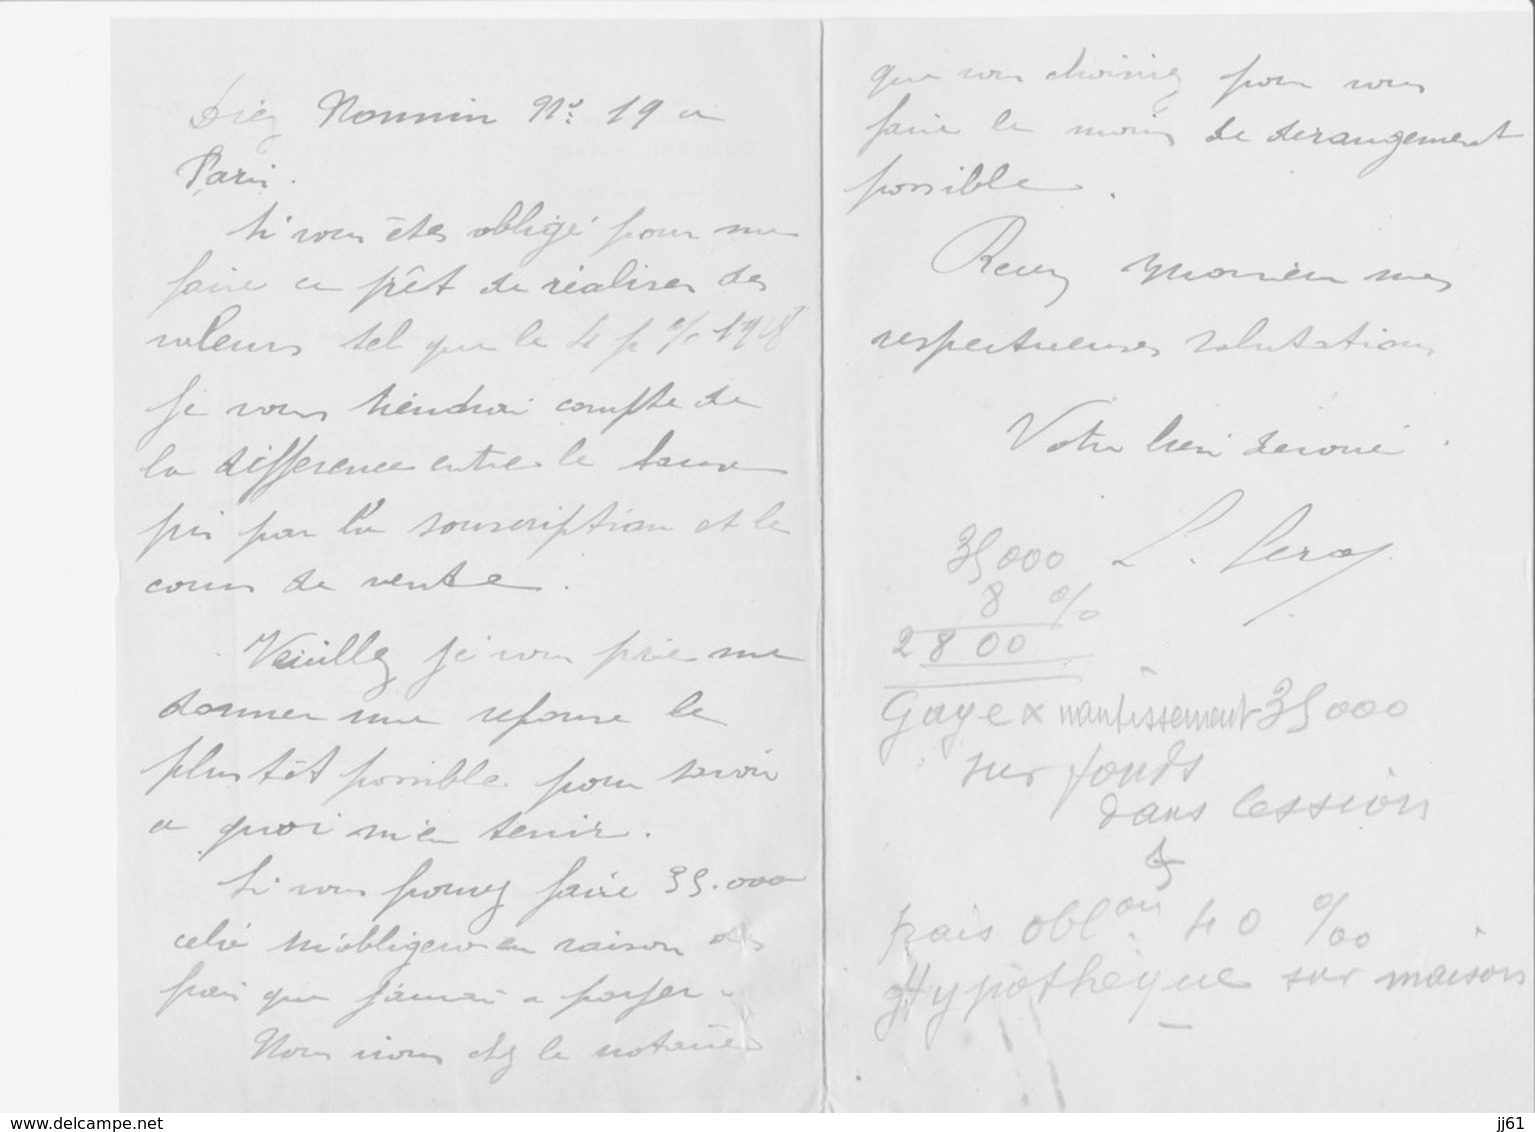 Nº 19 a
Paris.
Si vous êtes obligé pour me
faire ce prêt de réaliser des
valeurs tel que le 4 p % 1918
je vous tiendrai compte de
la difference entre le taux
pris par la souscription et le
cours de vente.
Veuillez je vous prie me
donner une reponse le
plus tôt possible pour savoir
a quoi m'en tenir.
Si vous pouvez faire 35.000
cela m'obligera en raison des
frais que j'aurai a payer.
Nous irons chez le notaire
que vous choisirez pour vous
faire le moins de derangement
possible.
Recevez Monsieur mes
respectueuses salutations
Votre bien devoué
L. Leroy
35000
8 %
2800
Gage x nantissement 35000
sur fonds
dans cession
&
frais oblon 40 %
Hypothèque sur maison
www.delcampe.net
jj61